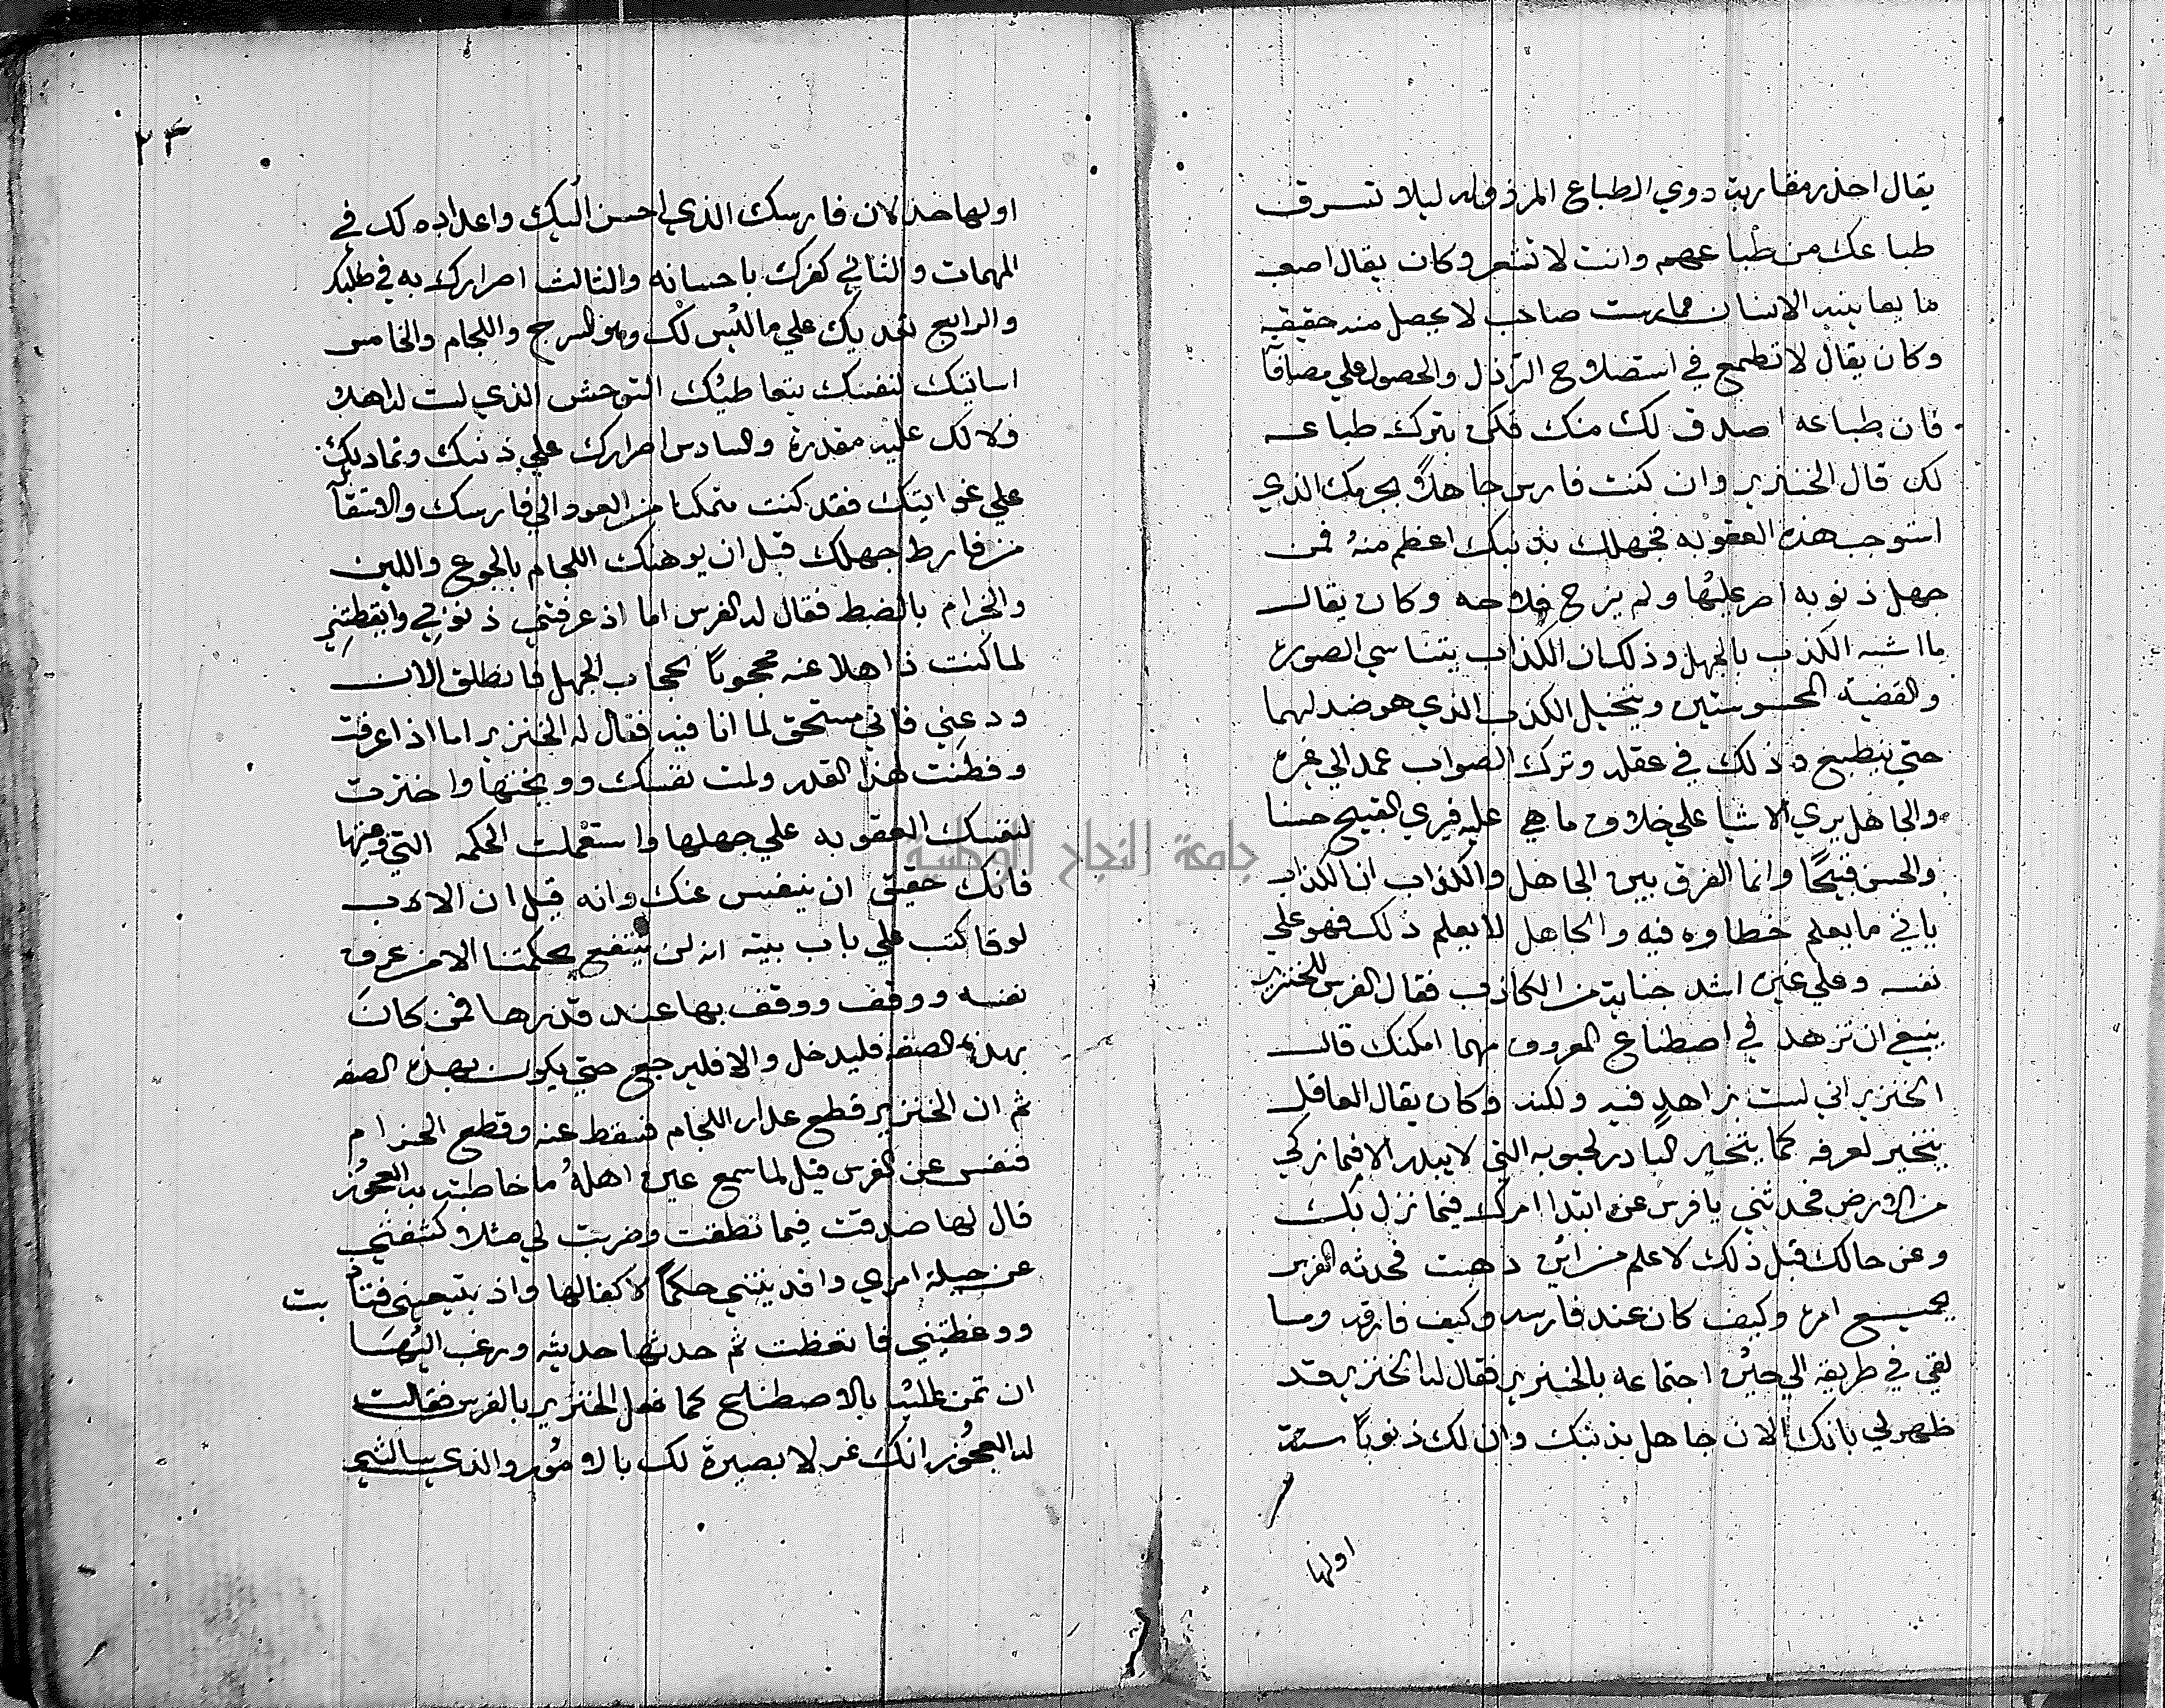 يقال احذر مقاربة ذوي الطباع المرذوله ليلا تسرق
طباعك من طباعهم وانت لا تشعر وكان يقال اصعب
ما يعانيه الانسان ممارست صاحب لا يحصل منه حقيقيه
وكان يقال لا تطمع في استصلاح الرذل والحصول علي مصافا
فان طباعه اصدق لك منك فكن بترك طباعه
لك قال الخنزير وان كنت فارس جاهلاً بجرمك الذي
استوجب هذه العقوبه فجهلك بذنبك اعظم منهُ فمن
جهل ذنوبه اصر عليها ولم يرج فلاحه وكان يقال
ما اشبه الكذب بالجهل وذلك ان الكذاب يتناسي الصوره
والقضية المحسوستين ويتخيل الكذب الذي هو ضد لهما
حتي ينطبع ذلك في عقله وترك الصواب عمد الي غيره
والجاهل يري الاشيا علي خلاف ما هي عليه فيري القبيح حسنا
والحسن قبيحًا وانما الفرق بين الجاهل والكذاب ان الكذاب
ياتي ما يعلم خطاوه فيه والجاهل لا يعلم ذلك فهو علي
نفسه وعلي غيره اشد جناية من الكاذب فقال الفرس للخنزير
ينبغي ان تزهد في اصطناع المعروف مهما امكنك قال
الخنزير اني لست بزاهد فيه ولكنه وكان يقال العاقل
يتخير لعرفه كما يتخير البادر لحبوبه التي لا يبدر الا فيما زكي
من الارض فحدثني يا فرس عن ابتدا امرك فيما نزل بك
وعن حالك قبل ذلك لاعلم من اين ذهبت فحدثه الفرس
بجميع امره وكيف كان عند فارسه وكيف فارقه وما
لقي في طريقه الي حين اجتماعه بالخنزير فقال له الخنزير قد
ظهر لي بانك الان جاهل بذنبك وان لك ذنوباً ستة
اولها
٢٣
اولها خذلان فارسك الذي احسن اليك واعداده لك في
المهمات والثاني كفرك باحسانه والثالث اضرارك به في طلبك
والرابع تعديك علي ما ليس لك وهو السرج واللجام والخامس
اساتيك لنفسك بتعاطيك التوحش الذي لست له اهلا
ولا لك عليه مقدرة والسادس اصرارك علي ذنبك وتماديك
علي غوايتك فقد كنت متمكنا من العود الي فارسك والاستقا
من فارط جهلك قبل ان يوهنك اللجام بالجوع واللبب
والحزام بالضبط فقال له الفرس اما اذ عرفتني ذنوبي وايقظتني
لما كنت ذاهلا عنه محجوباً بحجاب الجهل فانطلق الان
ودعني فاني مستحق لما انا فيه فقال له الخنزير اما اذا عرفت
وفطنت لهذا القدر ولمت نفسك ووبختها واخترت
لنفسك العقوبه علي جهلها واستعملت الحكمه التي
فانك حقيق ان ينفس عنك وانه قيل ان الادب
لوقا كتب علي باب بيته انه لن ينتفع بحكمتنا الا من عرف
نفسه ووقف ووقف بها عند قدرها فمن كان
بهذه الصفه فليدخل والا فليرجع حتي يكون بهذه الصفه
ثم ان الخنزير قطع عدار اللجام فسقط عنه وقطع الحزام
فنفس عن الفرس قيل لما سمع عين اهله ما خاطبته به العجوز
قال لها صدقت فيما نطقت وضربت لي مثلا وكشفتي
عن جيلة امري وافدتني حكماً لا كفا لها واذ بتيحيني فتا بت
ووعظتيني فاتعظت ثم حدثها حديثه ورغب اليها
ان تمن عليه بالاصطناع كما فعل الخنزير بالفرس فقالت
له العجوز انك غر لا بصيرة لك بالامور والذي سالتني
جامعة النجاح الوطنية